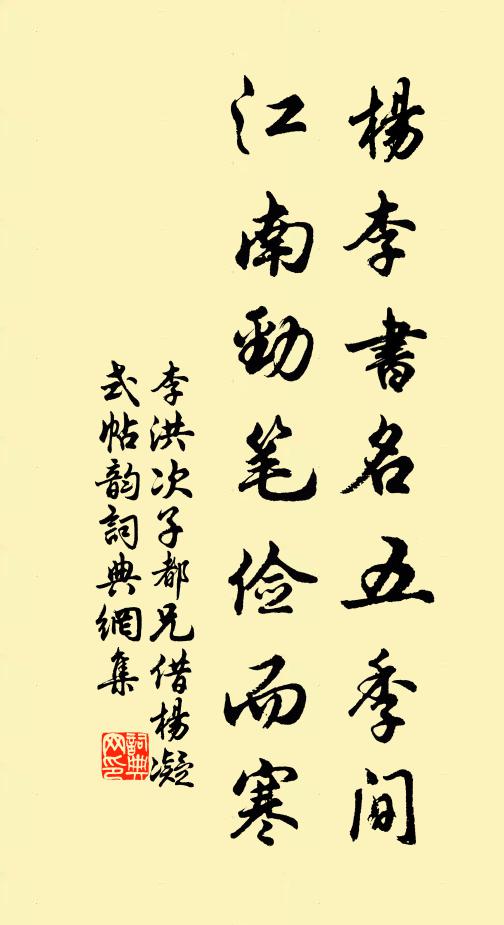 楊李書名五季间
江南勁笔俭而寒
李洪次子都兄借楊凝
式帖韵詞典網集
詞典
网印